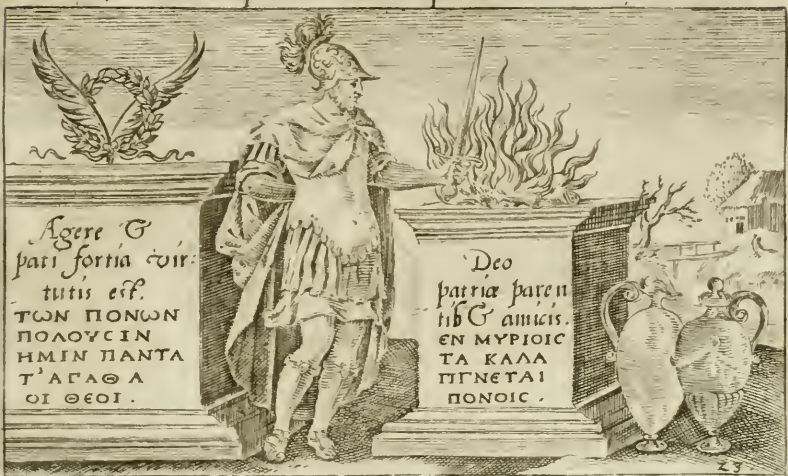 Agere &
pati fortia vir-
tutis est.
ΤΩΝ ΠΟΝΩΝ
ΠΟΛΟΥCΙΝ
ΗΜΙΝ ΠΑΝΤΑ
Τ'ΑΓΑΘΑ
ΟΙ ΘΕΟΙ.
Deo
patriæ paren
tib & amicis.
ΕΝ ΜΥΡΙΟΙC
ΤΑ ΚΑΛΑ
ΠΓΝΕΤΑΙ
ΠΟΝΟΙC.